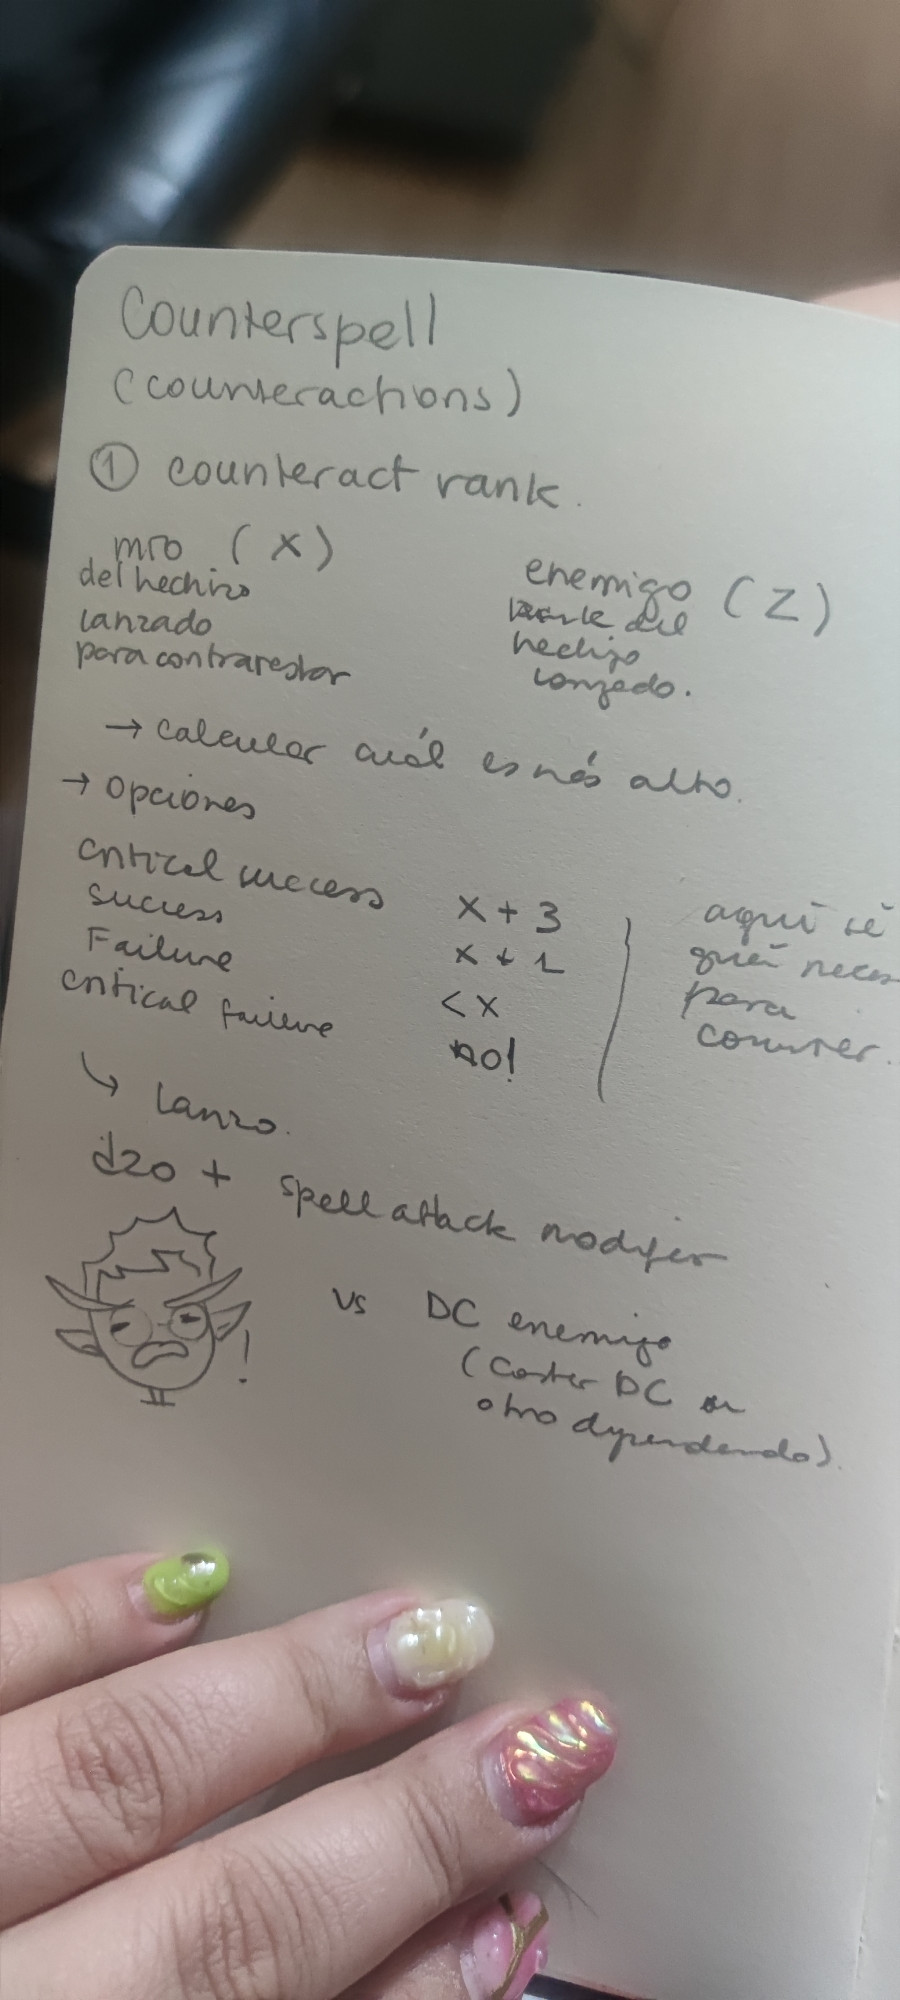 Counterspell
(counteractions)
① counteract rank.
mío (x)
del hechizo
lanzado
para contrarestar
enemigo (z)
del
hechizo
lanzado.
→ calcular cuál es más alto.
→ Opciones
critical success x + 3
success x + 1
Failure < x
critical failure no!
aquí sé
qué neces
para
counter.
↳ Lanzo.
d20 + spell attack modifier
!
vs DC enemigo
(Caster DC u
otro dependendo).